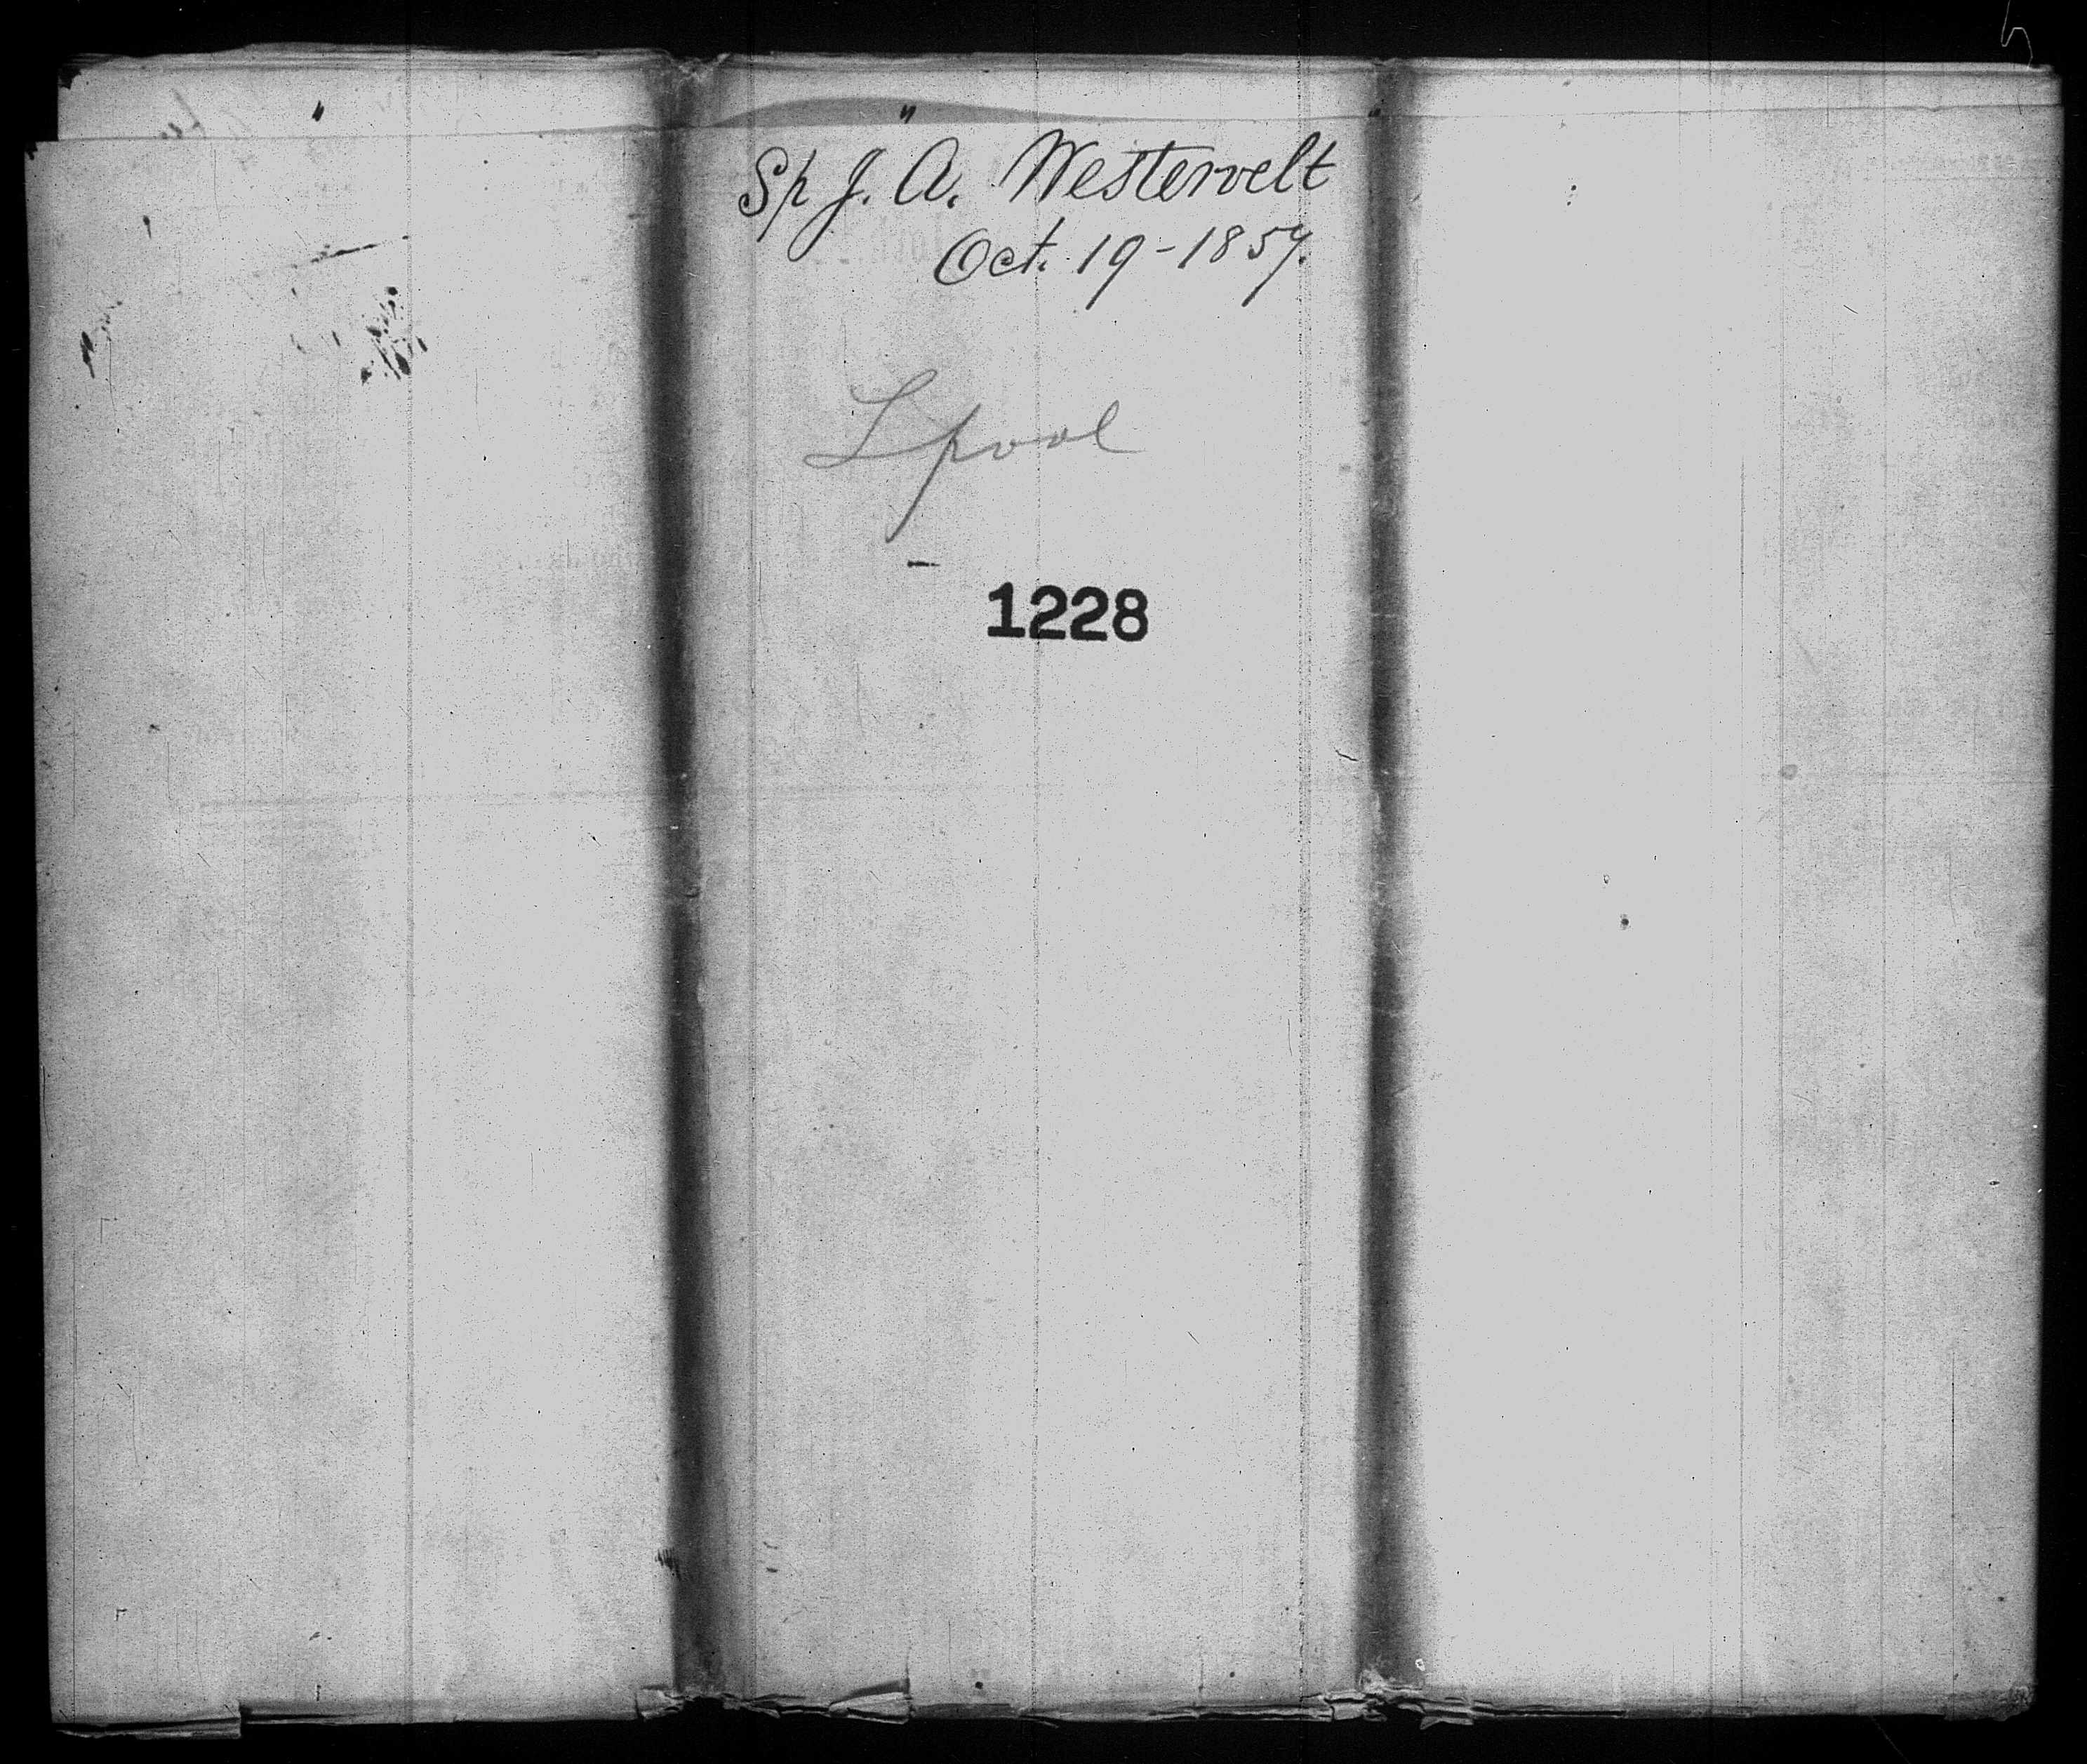 Sp J. A. Westervelt
Oct. 19-1857.
Lpool
1228